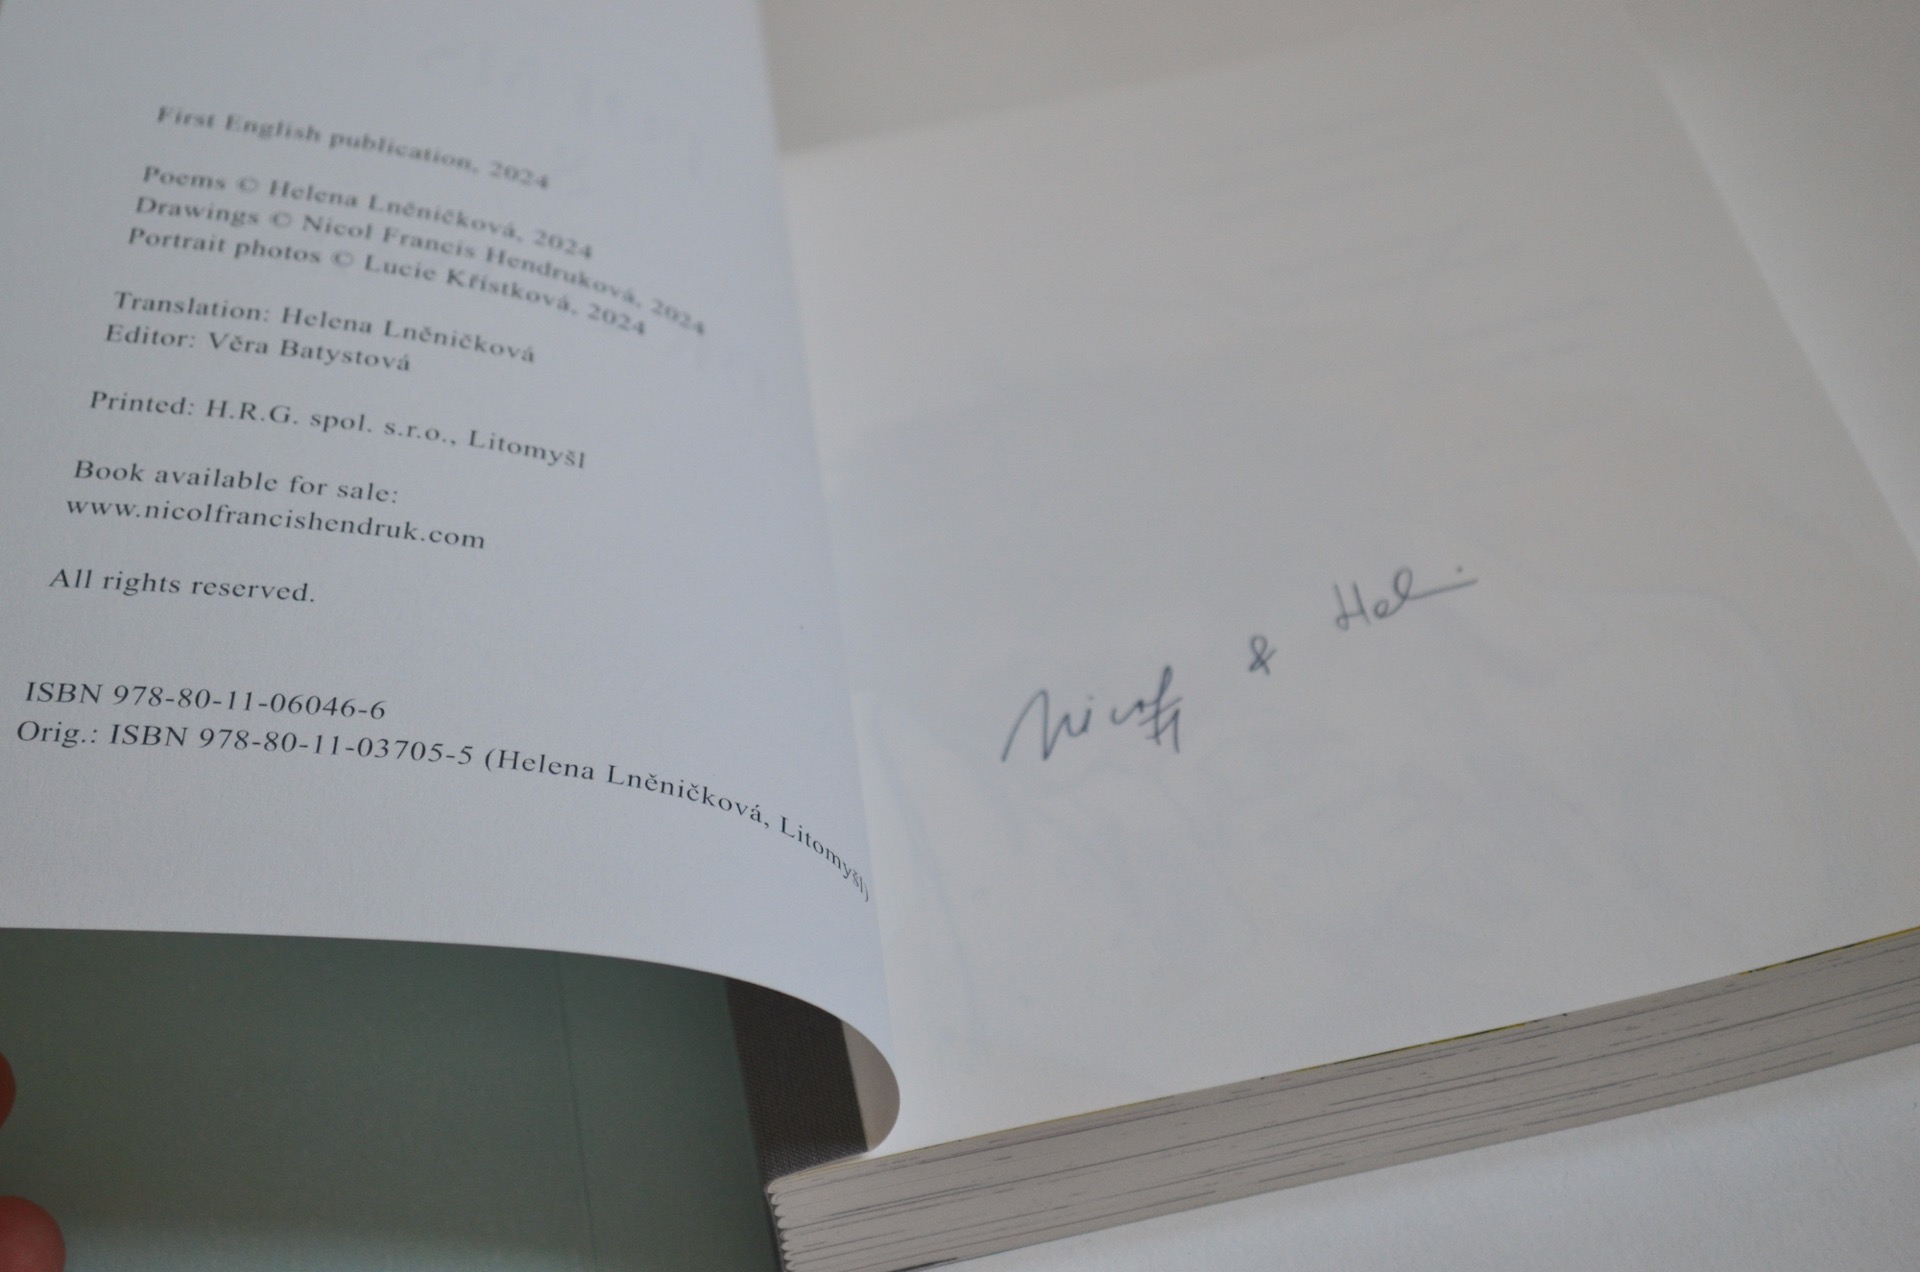 First English publication, 2024
Poems © Helena Lněničková, 2024
Drawings © Nicol Francis Hendruková, 2024
Portrait photos © Lucie Křístková, 2024
Translation: Helena Lněničková
Editor: Věra Batystová
Printed: H.R.G. spol. s.r.o., Litomyšl
Book available for sale:
www.nicolfrancishendruk.com
All rights reserved.
ISBN 978-80-11-06046-6
Orig.: ISBN 978-80-11-03705-5 (Helena Lněničková, Litomyšl)
&